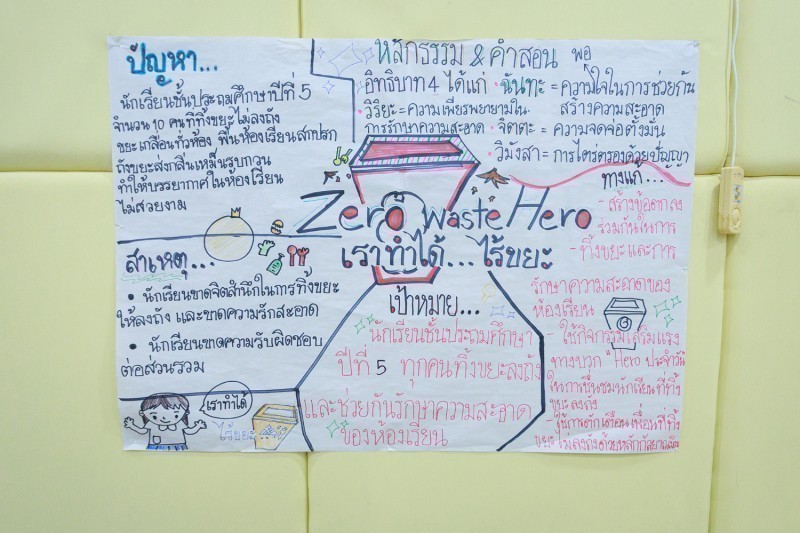 ปัญหา...
นักเรียนชั้นประถมศึกษาปีที่ 5
จำนวน 10 คนที่ทิ้งขยะไม่ลงถัง
ขยะเกลื่อนทั่วห้อง พื้นห้องเรียนสกปรก
ถังขยะส่งกลิ่นเหม็นรบกวน
ทำให้บรรยากาศในห้องเรียน
ไม่สวยงาม
หลักธรรม & คำสอน พอ
อิทธิบาท 4 ได้แก่ • ฉันทะ = ความใจในการช่วยกัน
สร้างความสะอาด
• วิริยะ = ความเพียรพยายามใน
การรักษาความสะอาด • จิตตะ = ความจดจ่อตั้งมั่น
• วิมังสา = การไตร่ตรองด้วยปัญญา
Zero waste Hero
เราทำได้... ไร้ขยะ
สาเหตุ...
• นักเรียนขาดจิตสำนึกในการทิ้งขยะ
ให้ลงถัง และขาดความรักสะอาด
• นักเรียนขาดความรับผิดชอบ
ต่อส่วนรวม
เราทำได้
ไร้ขยะ
เป้าหมาย...
นักเรียนชั้นประถมศึกษา
ปีที่ 5 ทุกคนทิ้งขยะลงถัง
และช่วยกันรักษาความสะอาด
ของห้องเรียน
ทางแก้...
- สร้างข้อตกลง
ร่วมกันในการ
- ทิ้งขยะและการ
รักษาความสะอาดของ
ห้องเรียน
- ใช้กิจกรรมเสริมแรง
ทางบวก "Hero ประจำวัน"
ในการชื่นชมนักเรียนที่ทิ้ง
ขยะลงถัง
- ใช้การตักเตือนเพื่อนที่ทิ้ง
ขยะไม่ลงถังด้วยหลักกัลยาณมิตร